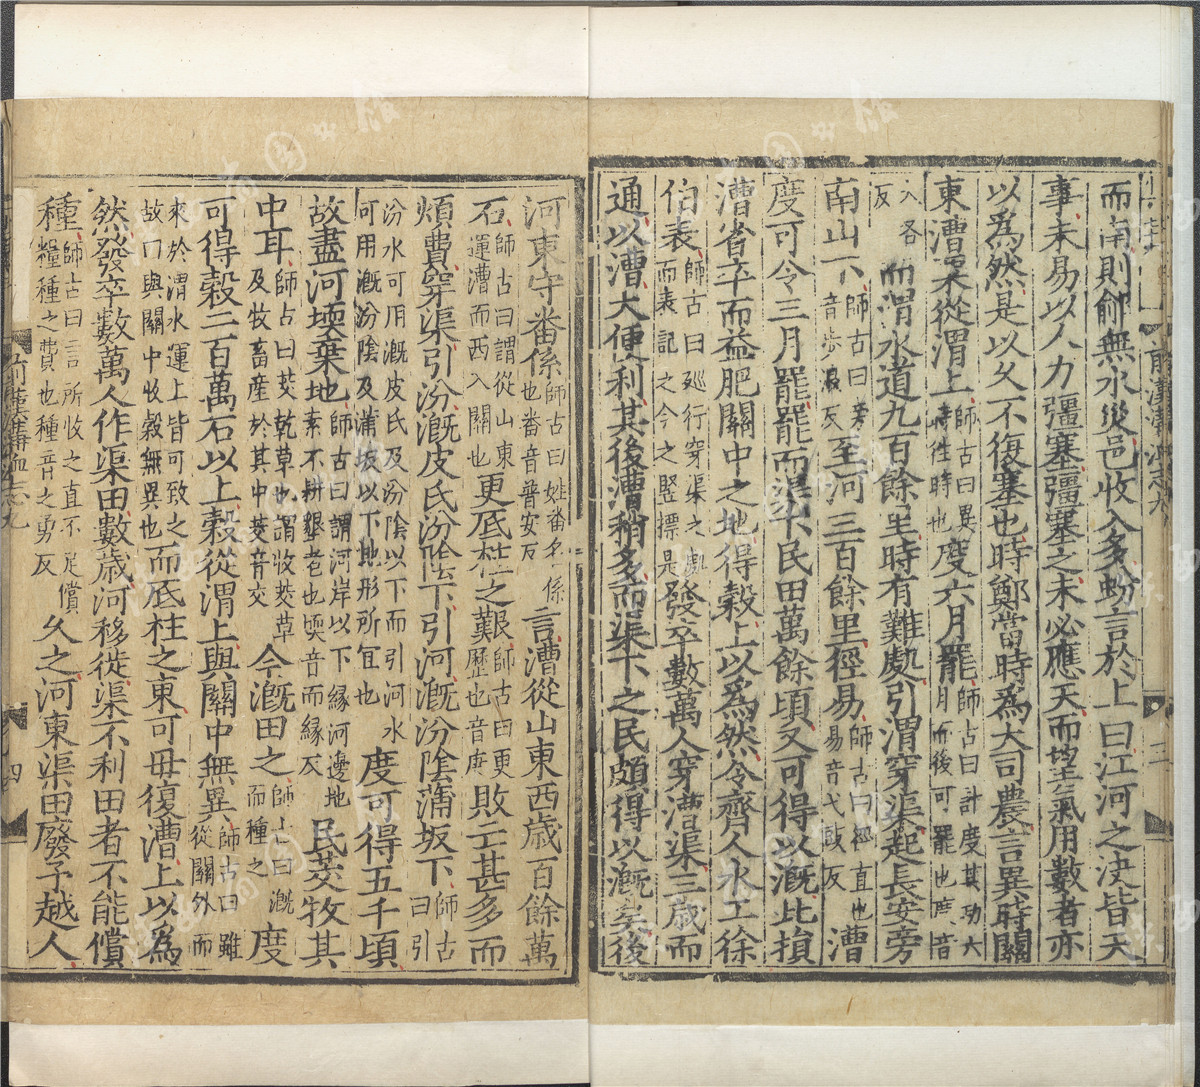 而南則鄃無水災邑收入多蚡言於上曰江河之決皆天
事未易以人力彊塞彊塞之未必應天而望氣用數者亦
以爲然是以乆不復塞也時鄭當時爲大司農言異時關
東漕粟從渭上師古曰異時徃時也度六月罷師古曰計度其功六月而後可罷也度音
入各反而渭水道九百餘里時有難處引渭穿渠起長安旁
南山下師古曰旁音歩浪反至河三百餘里徑易師古曰徑直也易音弋豉反漕
度可令三月罷罷而渠下民田萬餘頃又可得以漑此損
漕省卒而益肥關中之地得穀上以爲然令齊人水工徐
伯表師古曰廵行穿渠之處而表記之今之竪標是發卒數萬人穿漕渠三歲而
通以漕大便利其後漕稍多而渠下之民頗得以漑矣後
河東守番係師古曰姓番名係也番音普安反言漕從山東西歲百餘萬
石師古曰謂從山東運漕而西入關也更厎柱之艱師古曰更歷也音庚敗亡甚多而
煩費穿渠引汾漑皮氏汾隂下引河漑汾隂蒲坂下師古曰引
汾水可用漑皮氏及汾隂以下而引河水可用漑汾隂及蒲坂以下地形所宜也度可得五千頃
故盡河堧棄地師古曰謂河岸以下縁河邊地素不耕墾者也堧音而縁反民茭牧其
中耳師古曰茭乾草也謂收茭草及牧畜産於其中茭音交今漑田之師古曰漑而種之度
可得穀二百萬石以上穀從渭上與關中無異師古曰雖從關外而
來於渭水運上皆可致之故曰與關中收穀無異也而厎柱之東可毋復漕上以爲
然發卒數萬人作渠田數歲河移徙渠不利田者不能償
種師古曰言所收之直不足償糧種之費也種音之勇反久之河東渠田廢予越人
前漢溝洫志九
四